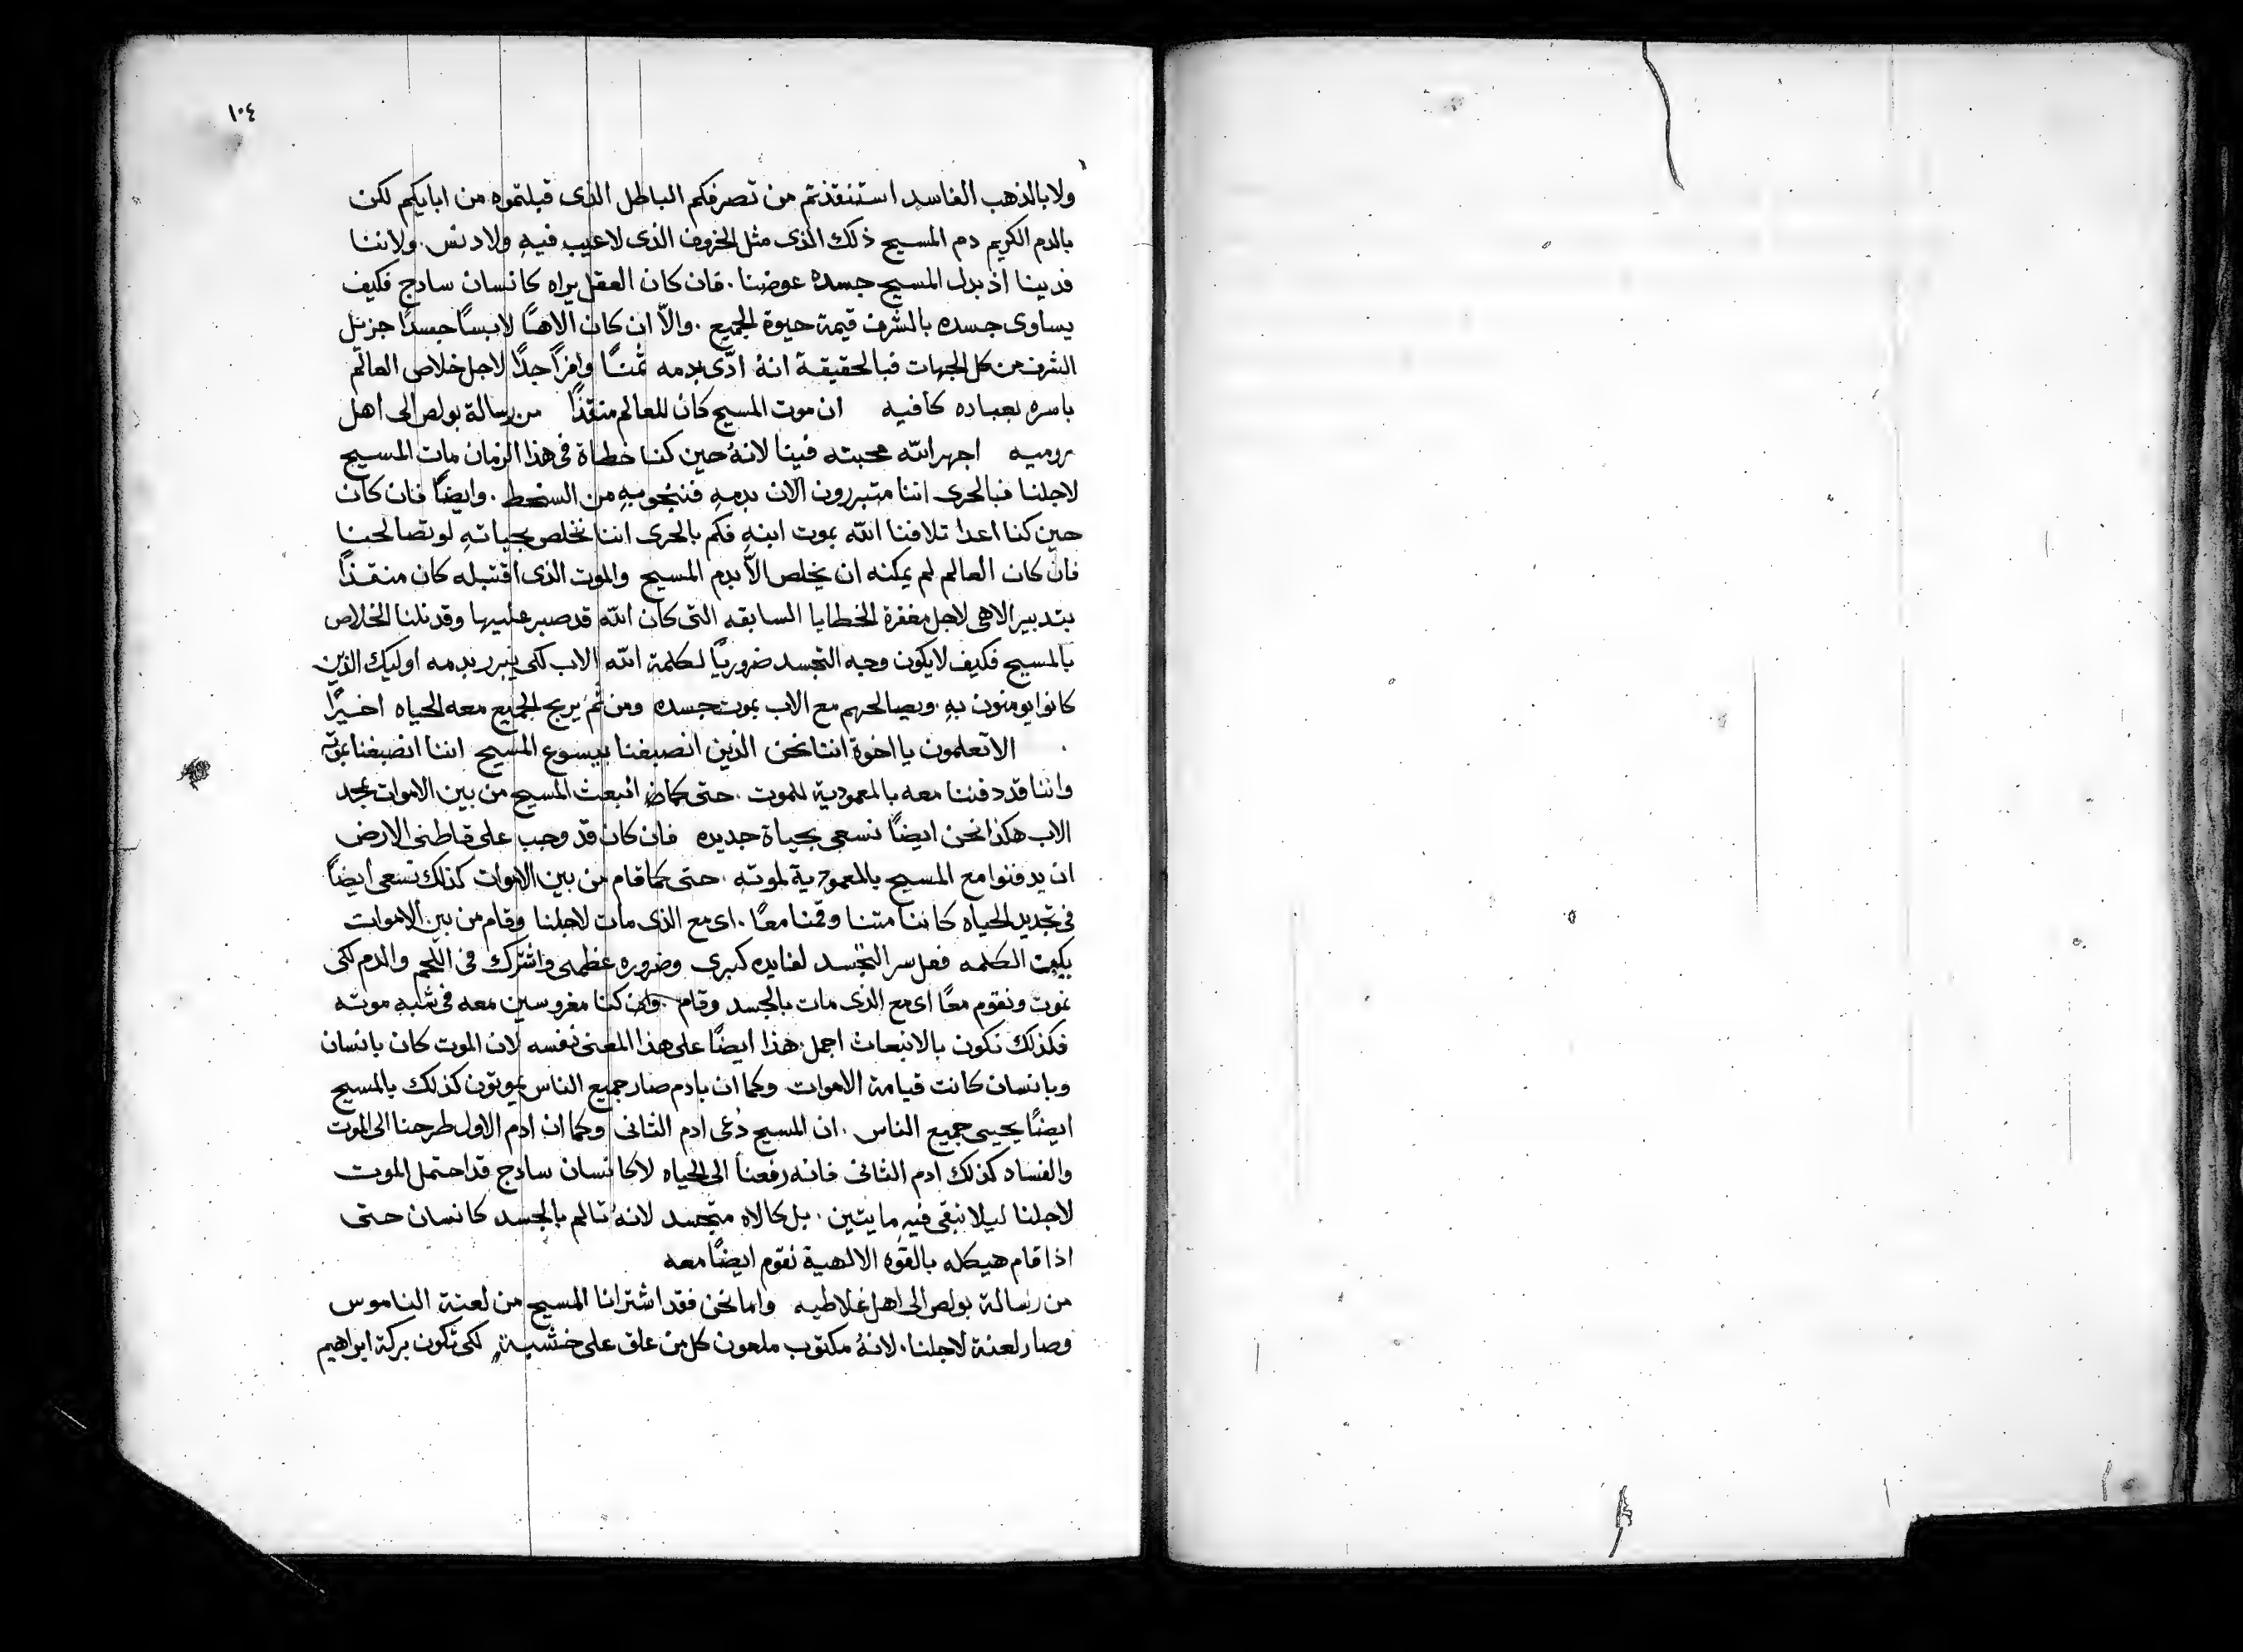 ١٠٤
ولا بالذهب الفاسد استنقذتم من تصرفكم الباطل الذى قبلتموه من ابايكم لكن
بالدم الكريم دم المسيح ذلك الذى مثل الخروف الذى لاعيب فيهِ ولا دنس. ولاننا
فدينا اذ بدل المسيح جسده عوضنا. فان كان العقل يراه كانسان سادج فكيف
يساوى جسده بالشرف قيمة حيوة الجميع. والاّ ان كان الاهًا لابسًا جسدًا جزيل
الشرف من كل الجهات فبالحقيقة انهُ ادّى بدمه ثمنًا وافرًا جدًا لاجل خلاص العالم
باسره بعباده كافيه ان موت المسيح كان للعالم منقذًا من رسالة بولص الى اهل
روميه اجهر الله محبته فينا لانهُ حين كنا خطاة فى هذا الزمان مات المسيح
لاجلنا فبالحرى اننا متبررون الان بدمهِ فننجو بهِ من السخط. وايضًا فان كان
حين كنا اعدا تلافنا الله بموت ابنهِ فكم بالحرى اننا نخلص بحياتهِ لو تصالحنا
فان كان العالم لم يمكنه ان يخلص الاّ بدم المسيح والموت الذى اقتبله كان منقذًا
بتدبير الاهى لاجل مغفرة الخطايا السابقه التى كان الله قد صبر عليها وقد نلنا الخلاص
بالمسيح فكيف لا يكون وجه التجسد ضروريًا لكلمة الله الاب لكى يتبرر بدمه اوليك الذين
كانوا يومنون بهِ. ويصالحهم مع الاب بموت جسده ومن ثَم يربح الجميع معه الحياه اخيرًا
الا تعلمون يا اخوة اننا نحن الذين انصبغنا بيسوع المسيح اننا انصبغنا بموته
واننا قد دفننا معه بالمعمودية للموت. حتى كما انبعث المسيح من بين الاموات بمجد
الاب هكذا نحن ايضًا نسعى بحياة جديده فان كان قد وجب على قاطنى الارض
ان يدفنوا مع المسيح بالمعمودية لموتهِ. حتى كما قام من بين الاموات كذلك نسعى ايضًا
فى تجديد الحياه كاننا متنا وقمنا معًا. اى مع الذى مات لاجلنا وقام من بين الاموات
الكلمه فعل سر التجسد لفايده كبرى وضروره عظمى واشترك فى اللحم والدم لكى
نموت ونقوم معًا اى مع الذى مات بالجسد وقام. وان كنا مغروسين معه فى شبه موته
فكذلك نكون بالانبعاث اجمل هذا ايضًا على هذا المعنى نفسه لان الموت كان بانسان
وبانسان كانت قيامة الاموات وكما ان بادم صار جميع الناس يموتون كذلك بالمسيح
ايضًا يحيى جميع الناس. ان المسيح دُعى ادم الثانى وكما ان ادم الاول طرحنا الى الموت
والفساد كذلك ادم الثانى فانه رفعنا الى الحياه لا كانسان سادج قد احتمل الموت
لاجلنا ليلا نبقى فيهِ مايتين. بل كالاه متجسد لانهُ تالم بالجسد كانسان حتى
اذا قام هيكله بالقوه الالهية نقوم ايضًا معه
من رسالة بولص الى اهل غلاطيه واما نحن فقد اشترانا المسيح من لعنة الناموس
وصار لعنة لاجلنا. لانهُ مكتوب ملعون كل من علق على خشبة لكى تكون بركة ابراهيم